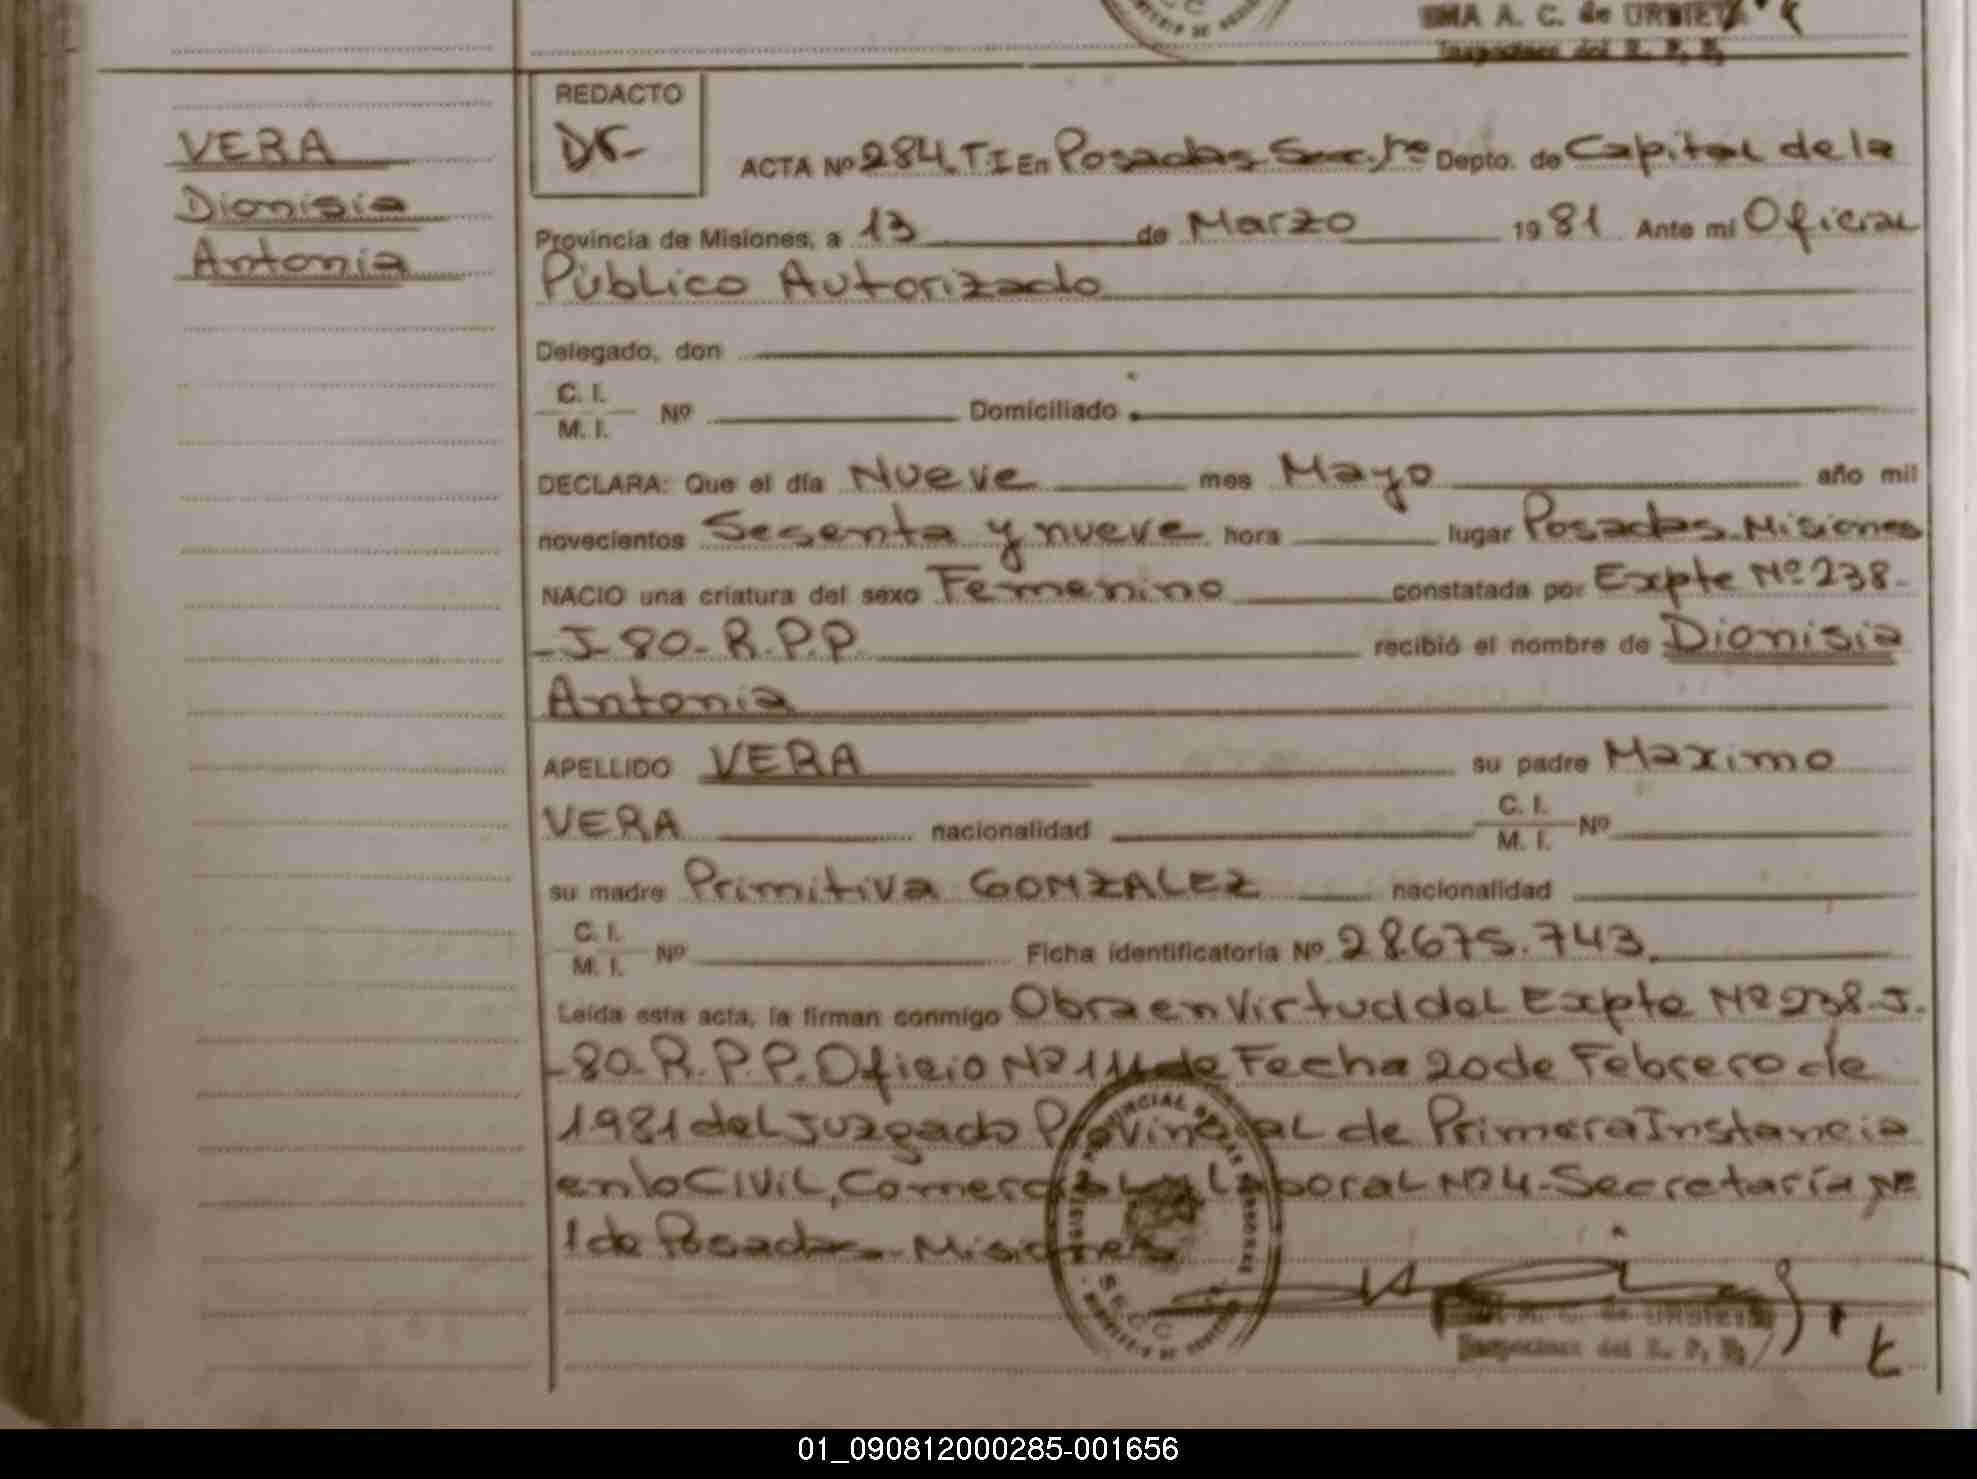 UMA A. C. de URBIETA
Inspectora del R. P. P.
VERA
Dionisia
Antonia
REDACTO
ACTA Nº 284 T.I En Posadas Sec. 1ra Depto. de Capital de la
Provincia de Misiones, a 13 de Marzo 1981 Ante mí Oficial
Público Autorizado
Delegado, don
C. I.
M. I. Nº Domiciliado
DECLARA: Que el día Nueve mes Mayo año mil
novecientos Sesenta y nueve hora lugar Posadas-Misiones
NACIO una criatura del sexo Femenino constatada por Expte Nº 238-
-J-80-R.P.P. recibió el nombre de Dionisia
Antonia
APELLIDO VERA su padre Maximo
VERA nacionalidad C. I.
M. I. Nº
su madre Primitiva GONZALEZ nacionalidad
C. I.
M. I. Nº Ficha identificatoria Nº 28.675.743
Leída esta acta, la firman conmigo Obra en Virtud del Expte Nº 238-J-
-80-R.P.P. Oficio Nº 111 de Fecha 20 de Febrero de
1981 del Juzgado Provincial de Primera Instancia
en lo Civil, Comercial y Laboral Nº 4-Secretaría Nº
1 de Posadas-Misiones
A. C. de URBIETA
Inspectora del R. P. P.
01_090812000285-001656